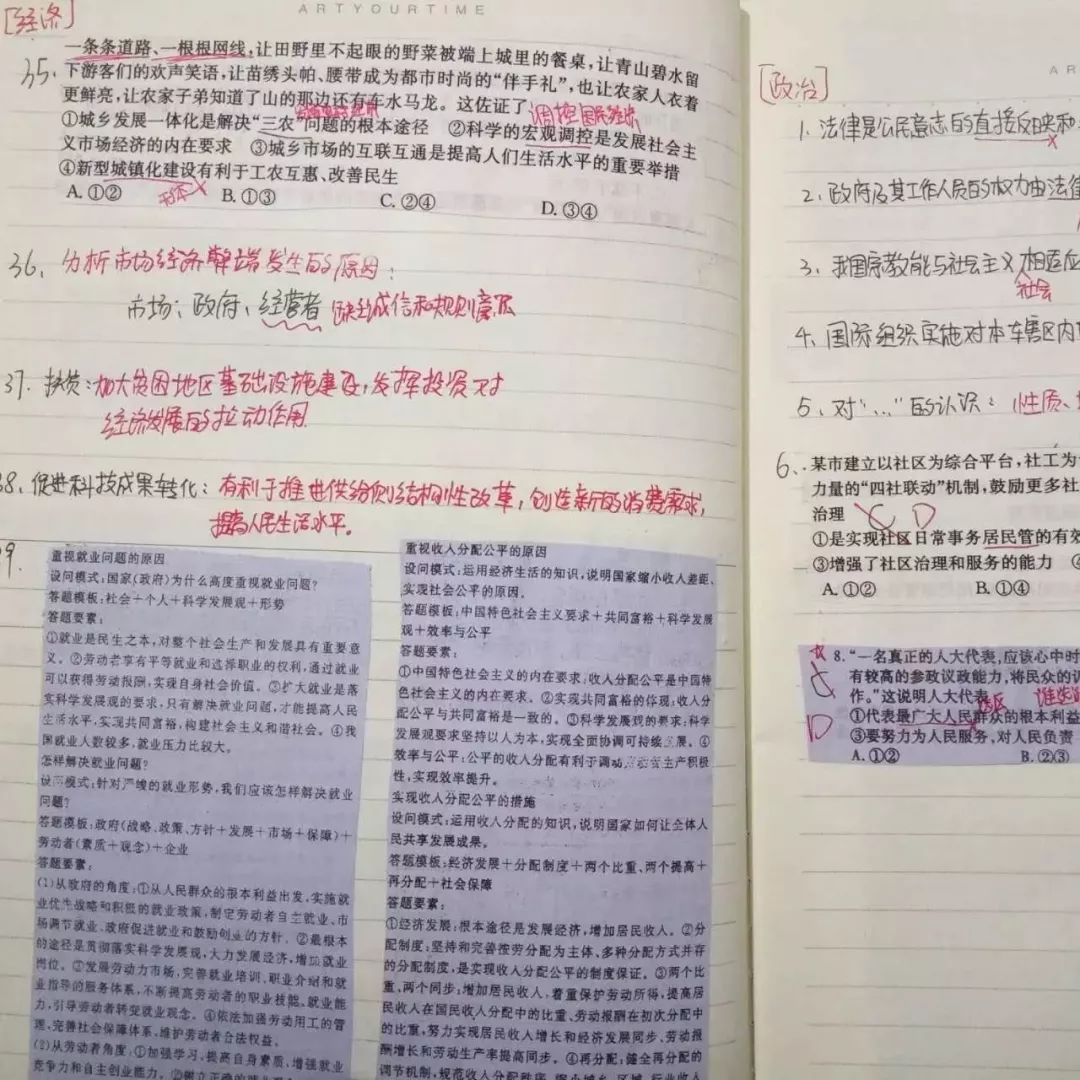 ARTYOURTIME
[经济]
一条条道路、一根根网线,让田野里不起眼的野菜被端上城里的餐桌,让青山碧水留
35.
下游客们的欢声笑语,让苗绣头帕、腰带成为都市时尚的“伴手礼”,也让农家人衣着
更鲜亮,让农家子弟知道了山的那边还有车水马龙。这佐证了
调控国民经济
①城乡发展一体化是解决“三农”问题的根本途径 ②科学的宏观调控是发展社会主
义市场经济的内在要求 ③城乡市场的互联互通是提高人们生活水平的重要举措
④新型城镇化建设有利于工农互惠、改善民生
A.①② B.①③ C.②④ D.③④
36、分析市场经济弊端发生的原因:
市场;政府;经营者 缺乏诚信和规则意识
37.扶贫:加大贫困地区基础设施建设,发挥投资对
经济发展的拉动作用
38、促进科技成果转化:有利于推进供给侧结构性改革,创造新的消费需求,
提高人民生活水平。
9.
重视就业问题的原因
设问模式:国家(政府)为什么高度重视就业问题?
答题模板:社会+个人+科学发展观+形势
答题要素:
①就业是民生之本,对整个社会生产和发展具有重要意
义。②劳动者享有平等就业和选择职业的权利,通过就业
可以获得劳动报酬,实现自身社会价值。③扩大就业是落
实科学发展观的要求,只有解决就业问题,才能提高人民
生活水平,实现共同富裕,构建社会主义和谐社会。④我
国就业人数较多,就业压力比较大。
怎样解决就业问题?
设问模式:针对严峻的就业形势,我们应该怎样解决就业
问题?
答题模板:政府(战略、政策、方针+发展+市场+保障)+
劳动者(素质+观念)+企业
答题要素:
(1)从政府的角度:①从人民群众的根本利益出发,实施就
业优先战略和积极的就业政策,制定劳动者自主就业、市
场调节就业、政府促进就业和鼓励创业的方针。②最根本
的途径是贯彻落实科学发展观,大力发展经济,增加就业
岗位。③发展劳动力市场,完善就业培训、职业介绍和就
业指导的服务体系,不断提高劳动者的职业技能、就业能
力,引导劳动者转变就业观念。④依法加强劳动用工的管
理、完善社会保障体系,维护劳动者合法权益。
(2)从劳动者角度:①加强学习,提高自身素质,增强就业
竞争力和自主创业能力。②树立正确的
重视收入分配公平的原因
设问模式:运用经济生活的知识,说明国家缩小收入差距、
实现社会公平的原因。
答题模板:中国特色社会主义要求+共同富裕+科学发展
观+效率与公平
答题要素:
①中国特色社会主义的内在要求,收入分配公平是中国特
色社会主义的内在要求。②实现共同富裕的体现:收入分
配公平与共同富裕是一致的。③科学发展观的要求:科学
发展观要求坚持以人为本,实现全面协调可持续发展。④
效率与公平:公平的收入分配有利于调动劳动者生产积极
性,实现效率提升。
实现收入分配公平的措施
设问模式:运用收入分配的知识,说明国家如何让全体人
民共享发展成果。
答题模板:经济发展+分配制度+两个比重、两个提高+
再分配+社会保障
答题要素:
①经济发展:根本途径是发展经济,增加居民收入。②分
配制度:坚持和完善按劳分配为主体、多种分配方式并存
的分配制度,是实现收入分配公平的制度保证。③两个比
重、两个同步:增加居民收入,着重保护劳动所得,提高居
民收入在国民收入分配中的比重、劳动报酬在初次分配中
的比重,努力实现居民收入增长和经济发展同步、劳动报
酬增长和劳动生产率提高同步。④再分配:健全再分配的
调节机制,规范收入分配秩序
AR
[政治]
1.法律是公民意志的直接反映和
2.政府及其工作人员的权力由法律
3.我国宗教能与社会主义相适应
社会
4、国际组织实施对本辖区内
5、对“...”的认识:性质、
6、某市建立以社区为综合平台,社工为
力量的“四社联动”机制,鼓励更多社
治理 C D
①是实现社区日常事务居民管的有效
③增强了社区治理和服务的能力
A.①② B.①④
8.“一名真正的人大代表,应该心中时
有较高的参政议政能力,将民众的
作。”这说明人大代表
选区
①代表最广大人民群众的根本利益
③要努力为人民服务,对人民负责
A.①② B.②③
D